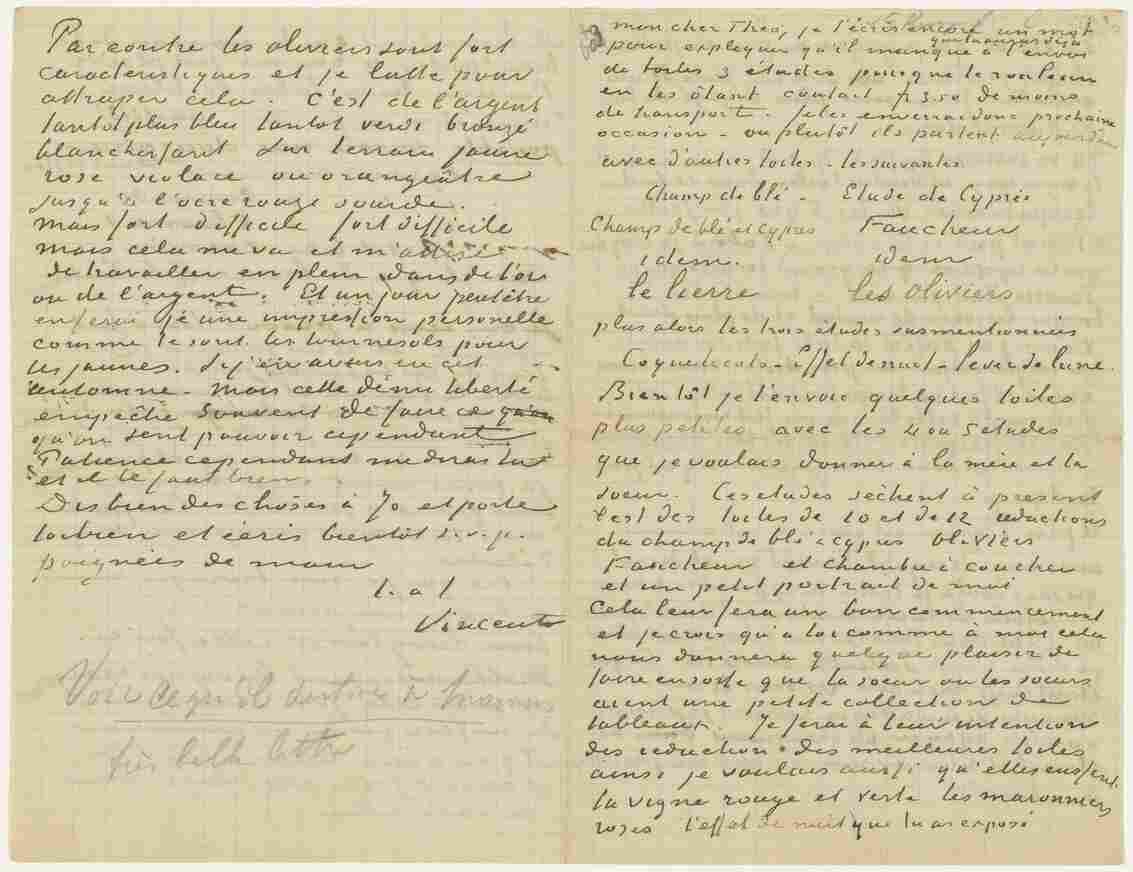 Par contre les oliviers sont fort
caracteristiques et je lutte pour
attraper cela. C'est de l'argent
tantot plus bleu tantot verdi bronzé
blanchissant sur terrain jaune
rose violacé ou orangeâtre
jusqu'à l'ocre rouge sourde.
Mais fort difficile fort difficile
Mais cela me va et m'attire
de travailler en plein dans de l'or
ou de l'argent. Et un jour peutêtre
en ferai je une impression personelle
comme le sont les tournesols pour
les jaunes. Si j'en avais eu cet
automne. Mais cette démi liberté
empêche souvent de faire ce qu'on
qu'on sent pouvoir cependant
Patience cependant me diras tu
et il le faut bien.
Dis bien des choses à Jo et porte
toi bien et écris bientôt s.v.p.
poignées de main
t. à t.
Vincent
Voir ce qu'il destine à
très belle lettre
mon cher Theo, je t'écris encore un mot
pour expliquer qu'il manque à l'envoi
que tu auras déjà
de toiles 3 études puisque le rouleau
en les ôtant coutait fr 3.50 de moins
de transport. Je les enverrai donc prochaine
occasion – ou plutôt ils partent aujourd'hui
avec d'autres toiles – les suivantes
Champ de blé – Etude de Cyprès
Champs de blé et cyprès Faucheur
idem. idem
le lierre les oliviers
plus alors les trois études susmentionnées
Coquelicots – Effet de nuit – lever de lune.
Bientôt je t'envoie quelques toiles
plus petites avec les 4 ou 5 études
que je voulais donner à la mère et la
soeur. Ces etudes sèchent à présent
c'est des toiles de 10 et de 12 reductions
du champ de blé et cyprès Oliviers
Faucheur et chambre à coucher
et un petit portrait de moi
Cela leur fera un bon commencement
et je crois qu'à toi comme à moi cela
nous donnera quelque plaisir de
faire en sorte que la soeur ou les soeurs
aient une petite collection de
tableaux. Je ferai à leur intention
des reduction des meilleures toiles
ainsi je voulais aussi qu'elles eussent
la vigne rouge et verte les maronniers
roses l'effet de nuit que tu as exposé